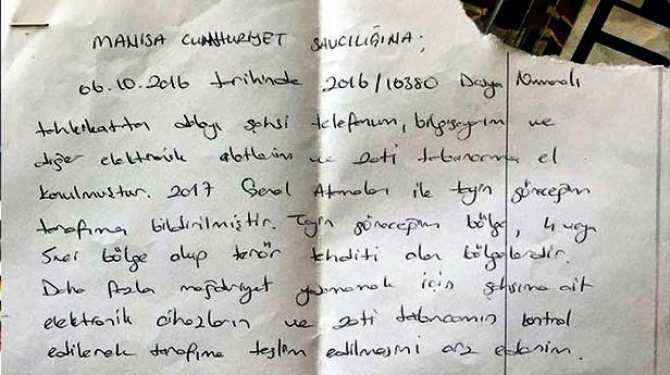 MANİSA CUMHURİYET SAVCILIĞINA;
06.10.2016 tarihinde 2016/10380 Dosya Numaralı
tahkikattan dolayı şahsi telefonum, bilgisayarım ve
diğer elektronik aletlerim ve zati tabancama el
konulmuştur. 2017 Genel Atmaları ile tayin göreceğim
tarafıma bildirilmiştir. Tayin göreceğim bölge, 4 veya
5nci bölge olup terör tehditi olan bölgelerdir.
Daha fazla mağduriyet yaşamamak için şahsıma ait
elektronik cihazların ve zati tabancamın kontrol
edilerek tarafıma teslim edilmesini arz ederim.